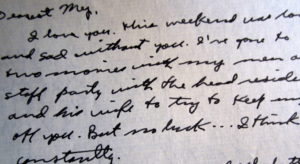 Dearest Meg,
I love you. This weekend was lon
and sad without you. I've gone to
two movies with my men a
staff party with the head reside
and his wife to try to keep m
off you. But no luck... I think
constantly.